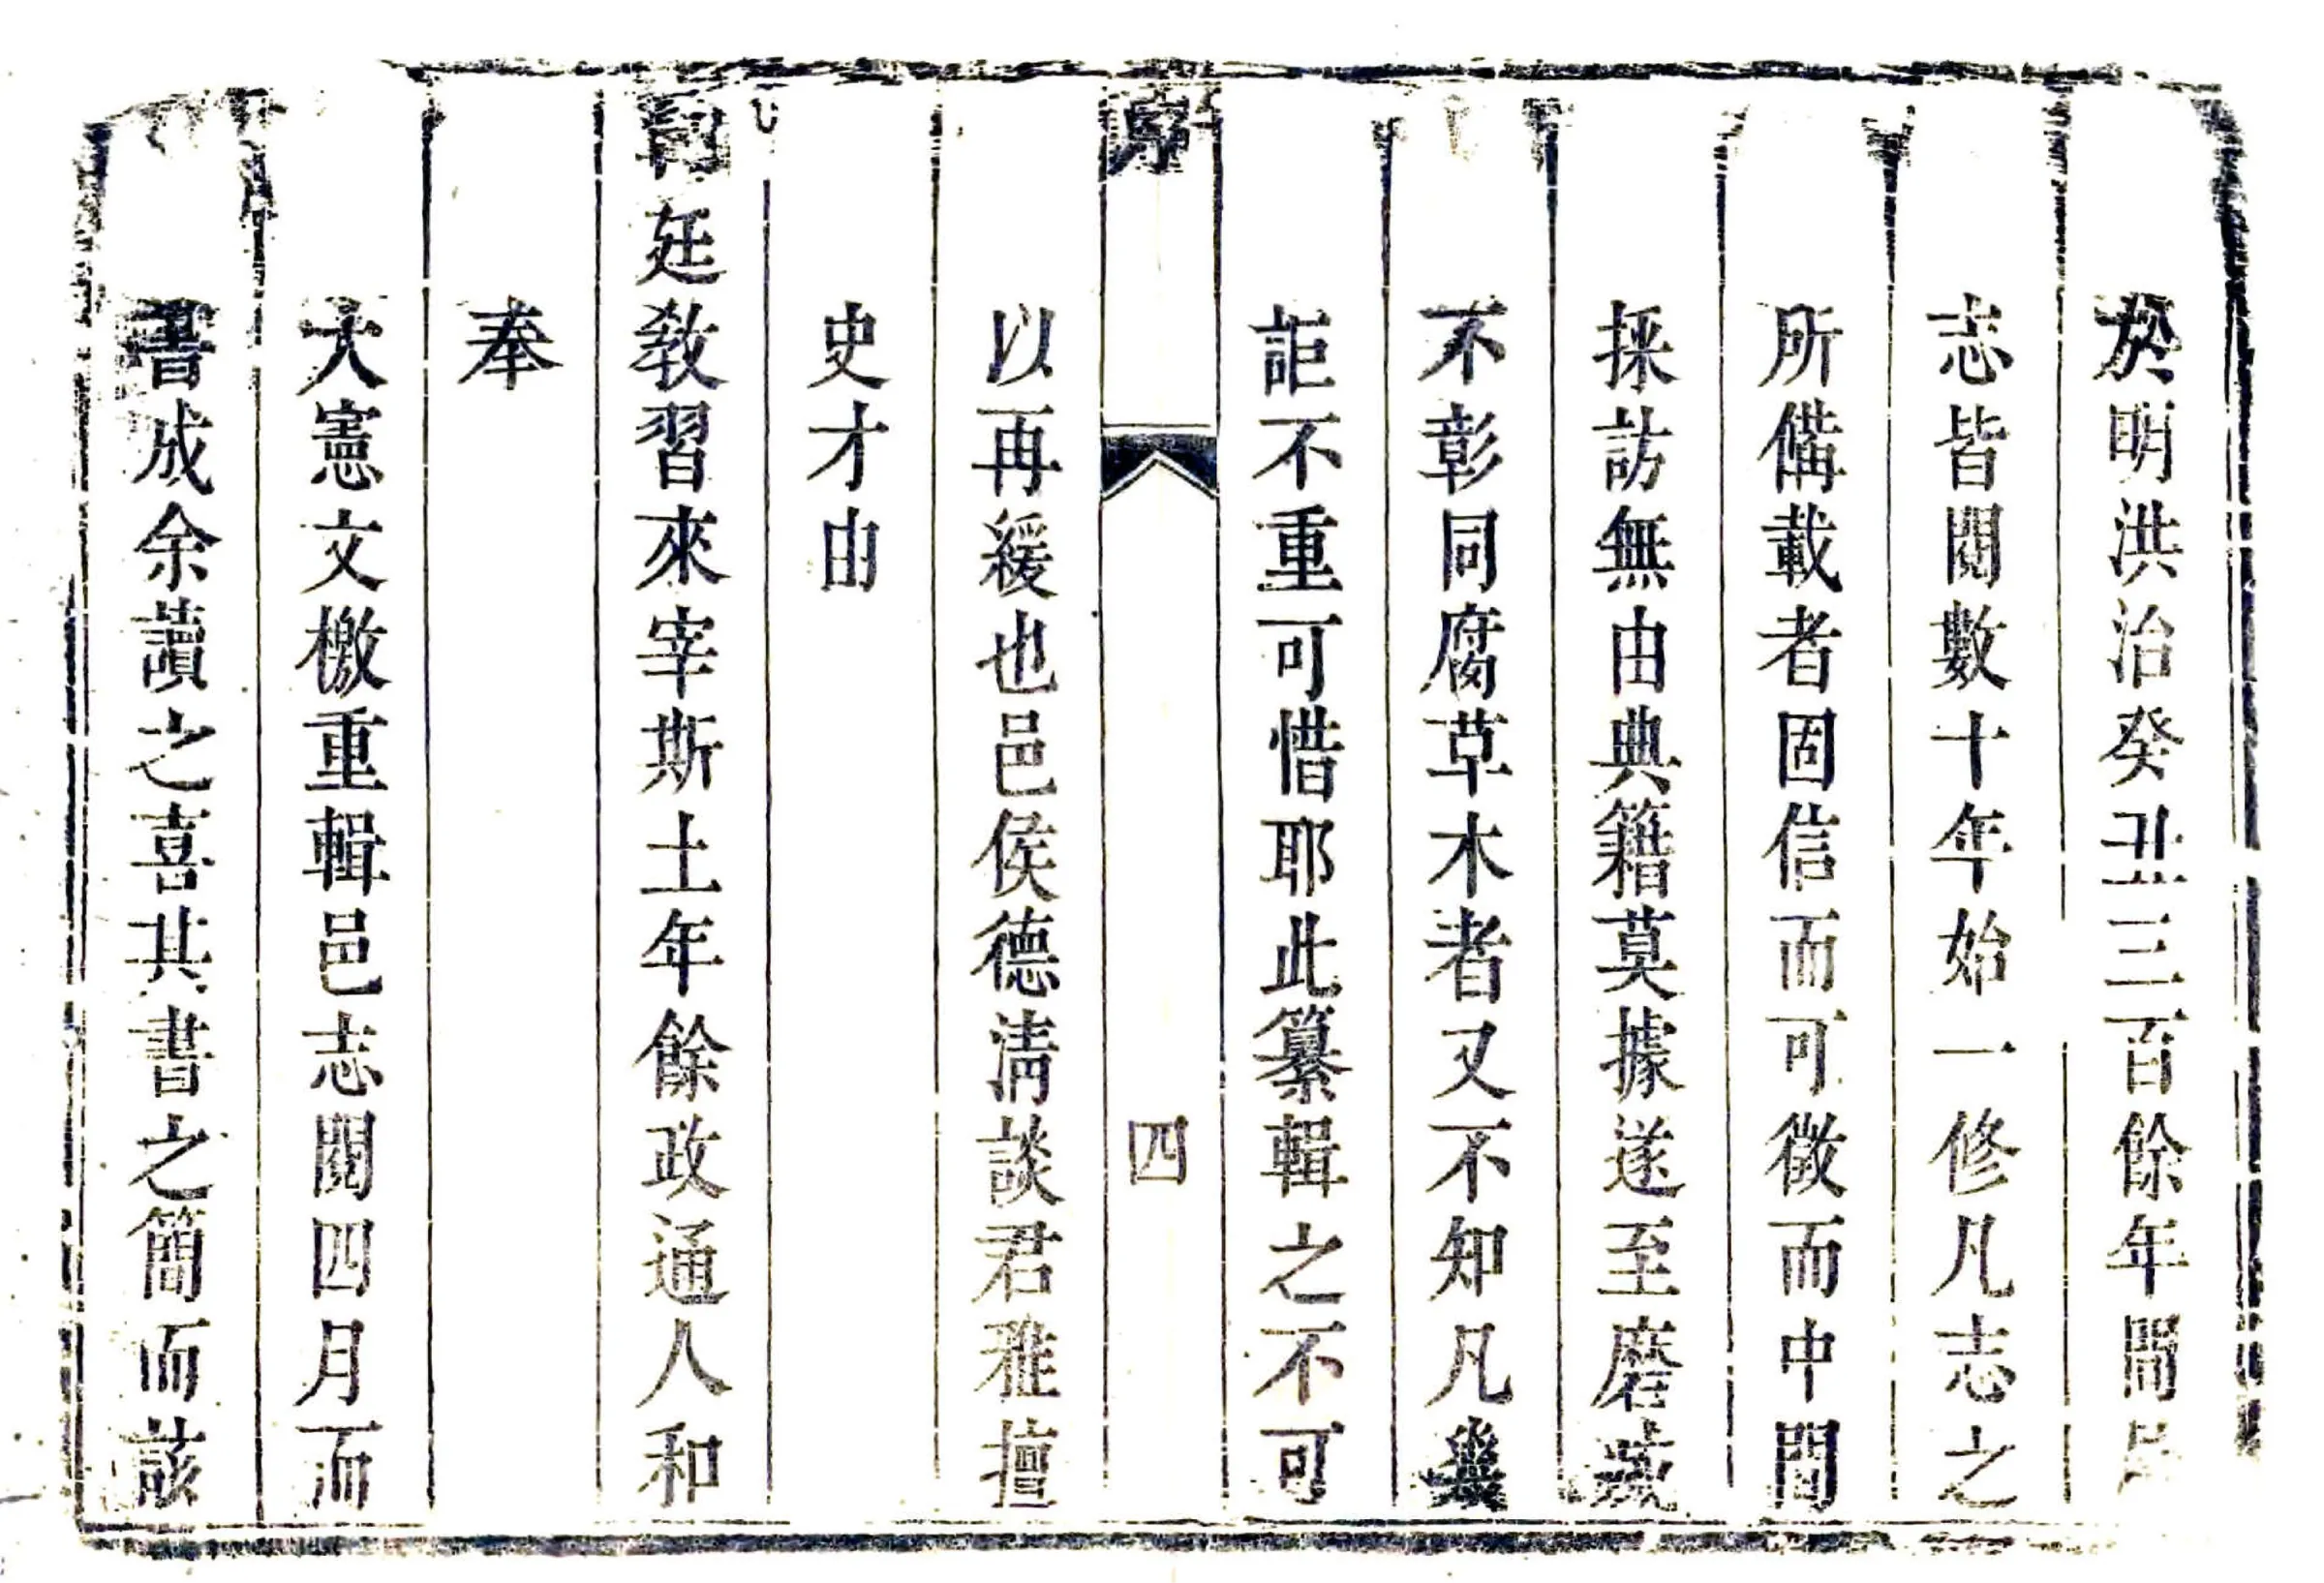 於明洪治癸丑三百餘年間
志皆閱數十年始一修凡志之
所備載者固信而可徵而中間
採訪無由典籍莫據遂至磨滅
不彰同腐草木者又不知凡幾
詎不重可惜耶此纂輯之不可
序
四
以再緩也邑侯德淸談君雅擅
史才由
詞廷敎習來宰斯土年餘政通人和
奉
大憲文檄重輯邑志閱四月而
書成余讀之喜其書之簡而該